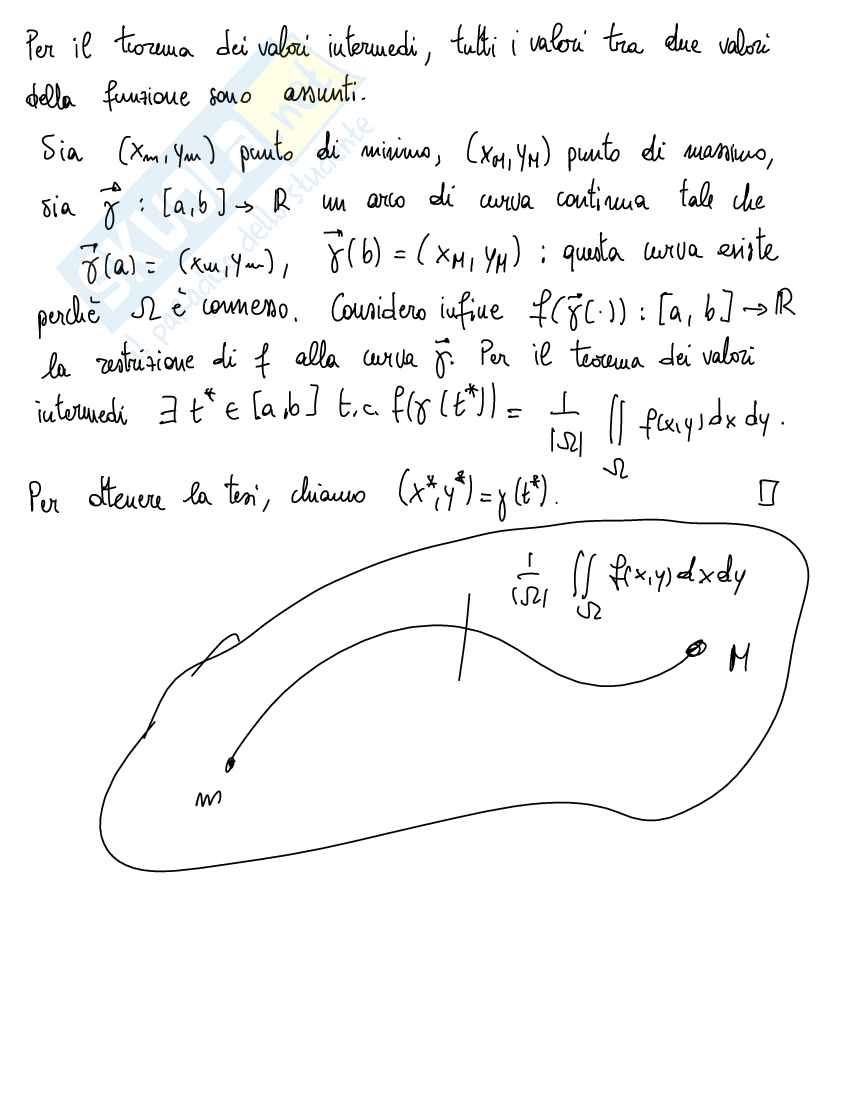 Per il teorema dei valori intermedi, tutti i valori tra due valori
della funzione sono assunti.
Sia (xm, ym) punto di minimo, (xM, yM) punto di massimo,
sia γ⃗ : [a,b] → ℝ un arco di curva continua tale che
γ⃗(a) = (xm, ym), γ⃗(b) = (xM, yM) : questa curva esiste
perchè Ω è connesso. Considero infine f(γ⃗(·)) : [a, b] → ℝ
la restrizione di f alla curva γ⃗. Per il teorema dei valori
intermedi ∃ t* ∈ [a,b] t.c. f(γ(t*)) = 1/|Ω| ∬_Ω f(x,y) dx dy.
Per ottenere la tesi, chiamo (x*, y*) = γ(t*). □
1/|Ω| ∬_Ω f(x,y) dx dy
M
m
SKUOLA.net
il paradiso dello studente